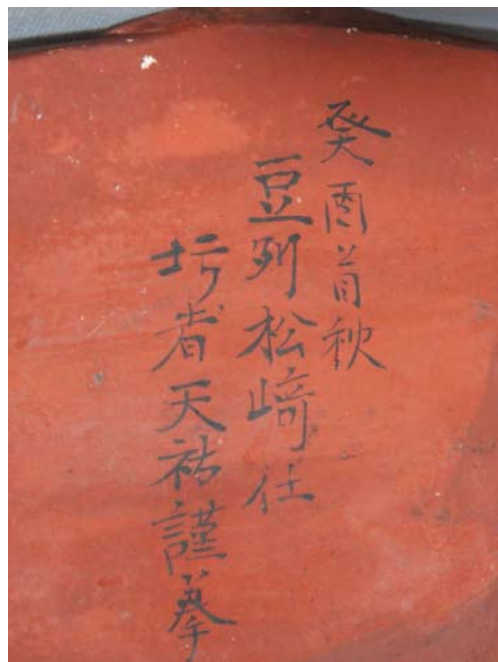 癸酉首秋
豆州松﨑住
圬者天祐謹摹